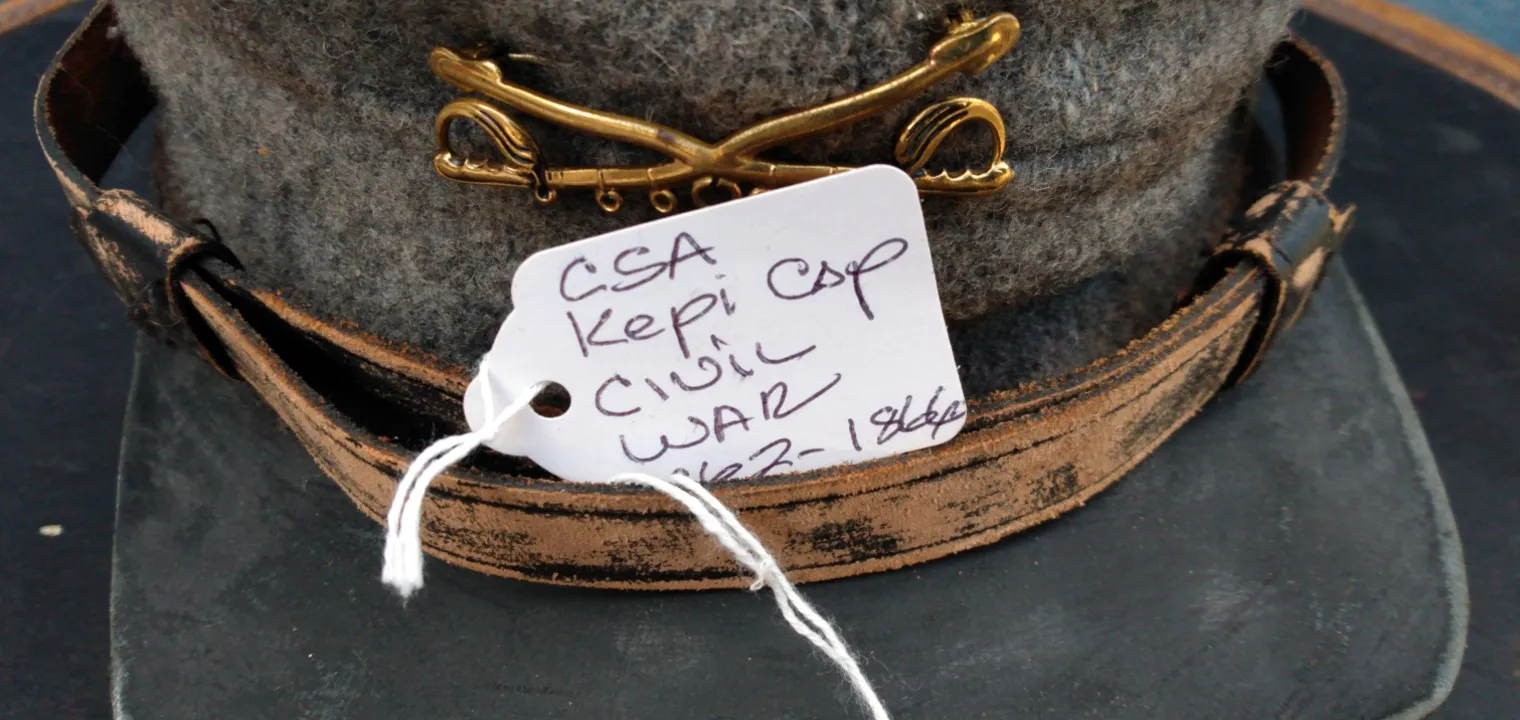 CSA
Kepi Cap
CIVIL
WAR
1862-1864